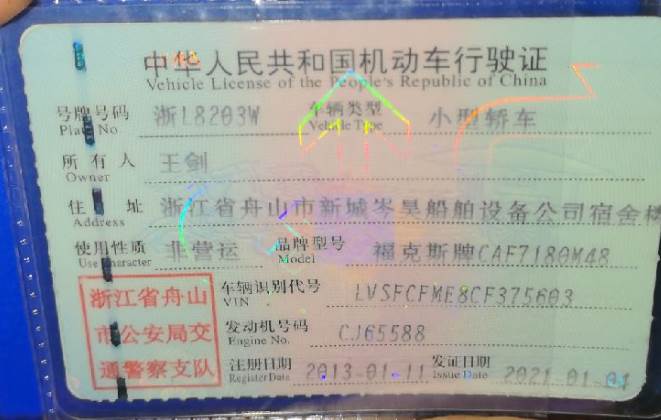 中华人民共和国机动车行驶证
Vehicle License of the People's Republic of China
号牌号码 浙L8203W 车辆类型 小型轿车
Plate No. Vehicle Type
所有人 王剑
Owner
住址 浙江省舟山市新城岑昊船舶设备公司宿舍楼
Address
使用性质 非营运 品牌型号 福克斯牌CAF7180M48
Use Character Model
浙江省舟山
市公安局交
通警察支队
车辆识别代号 LVSFCFME8CF375603
VIN
发动机号码 CJ65588
Engine No.
注册日期 2013-01-11 发证日期 2021-01-01
Register Date Issue Date